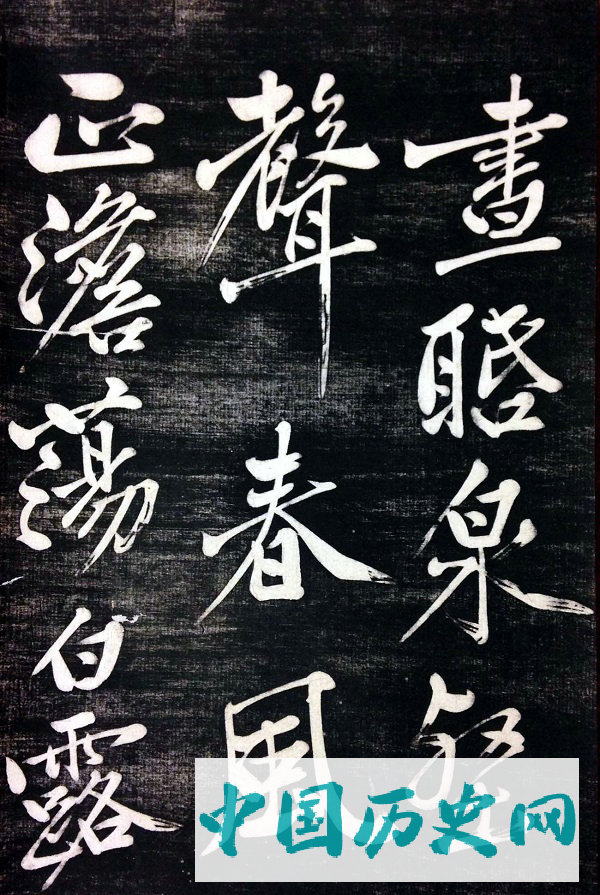 晝聒泉
聲春風
正澹蕩白露
中国历史网